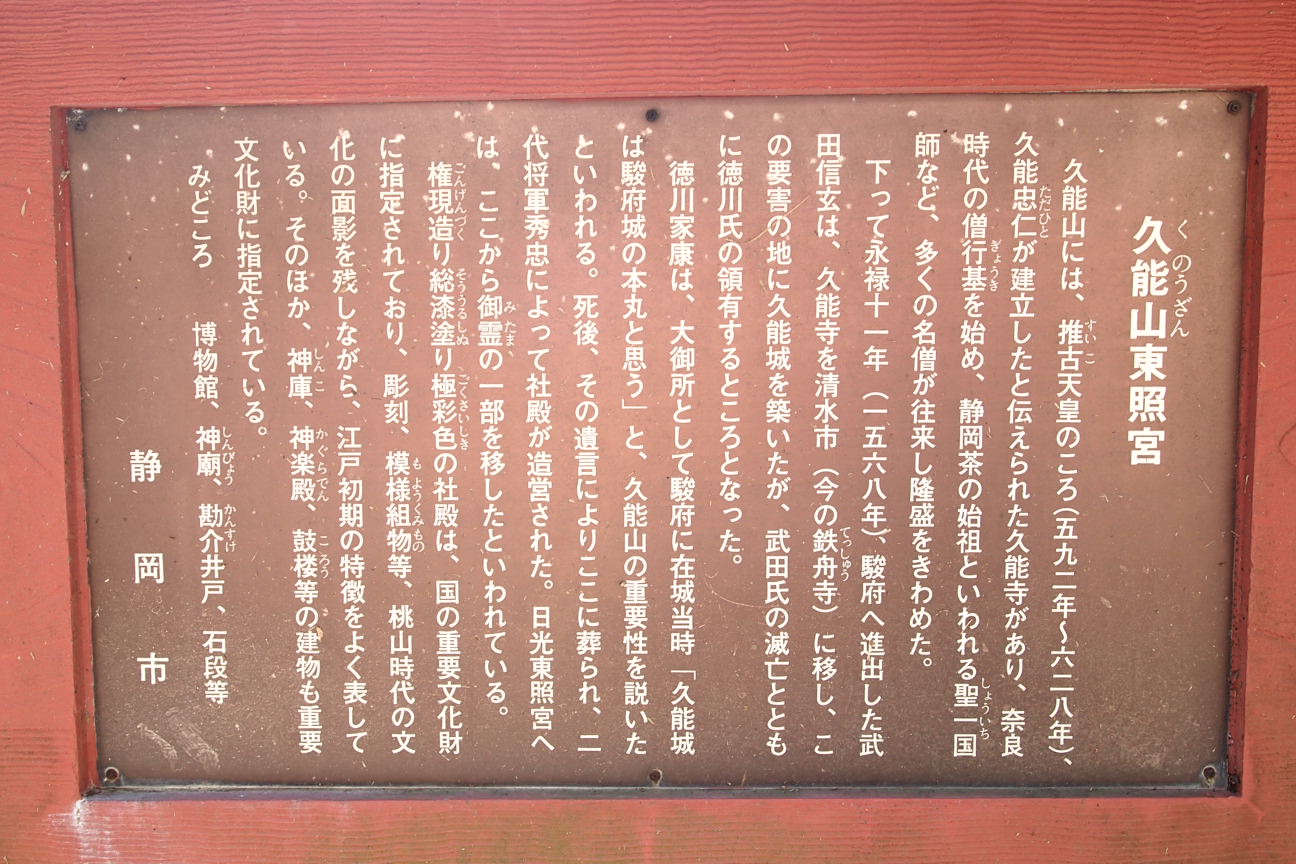 久能山東照宮
くのうざん
久能山には、推古天皇のころ（五九二年～六二八年）、
すいこ
久能忠仁が建立したと伝えられた久能寺があり、奈良
ただひと
時代の僧行基を始め、静岡茶の始祖といわれる聖一国
ぎょうき
しょういち
師など、多くの名僧が往来し隆盛をきわめた。
下って永禄十一年（一五六八年）、駿府へ進出した武
田信玄は、久能寺を清水市（今の鉄舟寺）に移し、こ
てっしゅう
の要害の地に久能城を築いたが、武田氏の滅亡ととも
に徳川氏の領有するところとなった。
徳川家康は、大御所として駿府に在城当時「久能城
は駿府城の本丸と思う」と、久能山の重要性を説いた
といわれる。死後、その遺言によりここに葬られ、二
代将軍秀忠によって社殿が造営された。日光東照宮へ
は、ここから御霊の一部を移したといわれている。
みたま、
権現造り総漆塗り極彩色の社殿は、国の重要文化財
ごんげんづく
そううるしぬ
ごくさいしき
に指定されており、彫刻、模様組物等、桃山時代の文
もようくみもの
化の面影を残しながら、江戸初期の特徴をよく表して
いる。そのほか、神庫、神楽殿、鼓楼等の建物も重要
しんこ
かぐらでん
ころう
文化財に指定されている。
みどころ　博物館、神廟、勘介井戸、石段等
しんびょう
かんすけ
静岡市